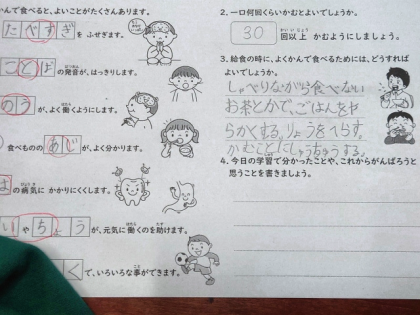 かんで食べると、よいことがたくさんあります。
たべすぎ を ふせぎます。
ことば の発音が、はっきりします。
はつおん
のう が、よく働くようにします。
はたら
食べものの あじ が、よく分かります。
は の病気に かかりにくくします。
びょうき
いちょう が、元気に 働くのを助けます。
く で、いろいろな事ができます。
2. 一口何回くらいかむとよいでしょうか。
30 回以上 かむようにしましょう。
かい いじょう
3. 給食の時に、よくかんで食べるためには、どうすれば
よいでしょうか。
しゃべりながら食べない
お茶とかで、ごはんをや
らかくする。りょうをへらす。
かむことにしゅうちゅうする。
4. 今日の学習で分かったことや、これからがんばろうと
思うことを書きましょう。